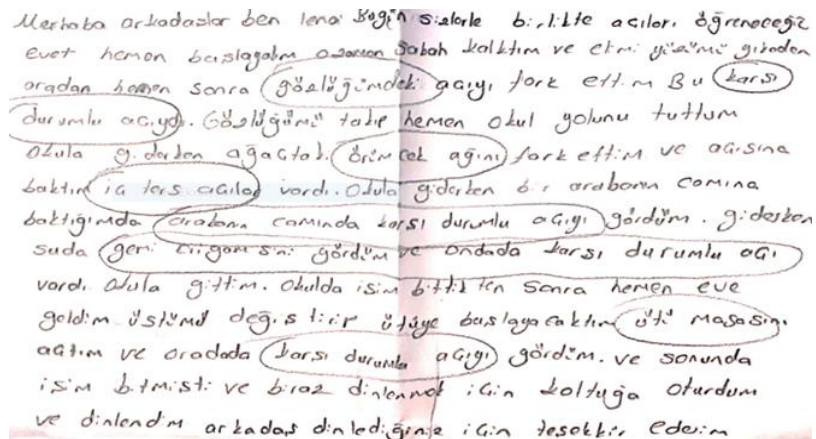 Merhaba arkadaslar ben lena Bugün sizlerle birlikte acıları öğreneceğiz
evet hemen baslayalım ozaman Sabah kalktım ve elimi yüzümü yıkadım
oradan hemen sonra gözlüğümdeki açıyı fark ettim Bu karsı
durumlu acıydı. Gözlüğümü takıp hemen okul yolunu tuttum
Okula giderken ağaçtaki örümcek ağını fark ettim ve acısına
baktım iç ters acılar vardı. Okula giderken bir arabanın camına
baktığımda arabanın camında karsı durumlu açıyı gördüm. giderken
suda gemi gördüm ve ondada karsı durumlu acı
vardı Okula gittim. Okulda isim bittikten Sonra hemen eve
geldim üstümü değistirip ütüye baslayacaktım ütü masasını
actım ve oradada karsı durumlu açıyı gördüm. ve sonunda
isim bitmisti ve biraz dinlenmek için koltuğa oturdum
ve dinlendim arkadas dinlediğiniz için tesekkür ederim